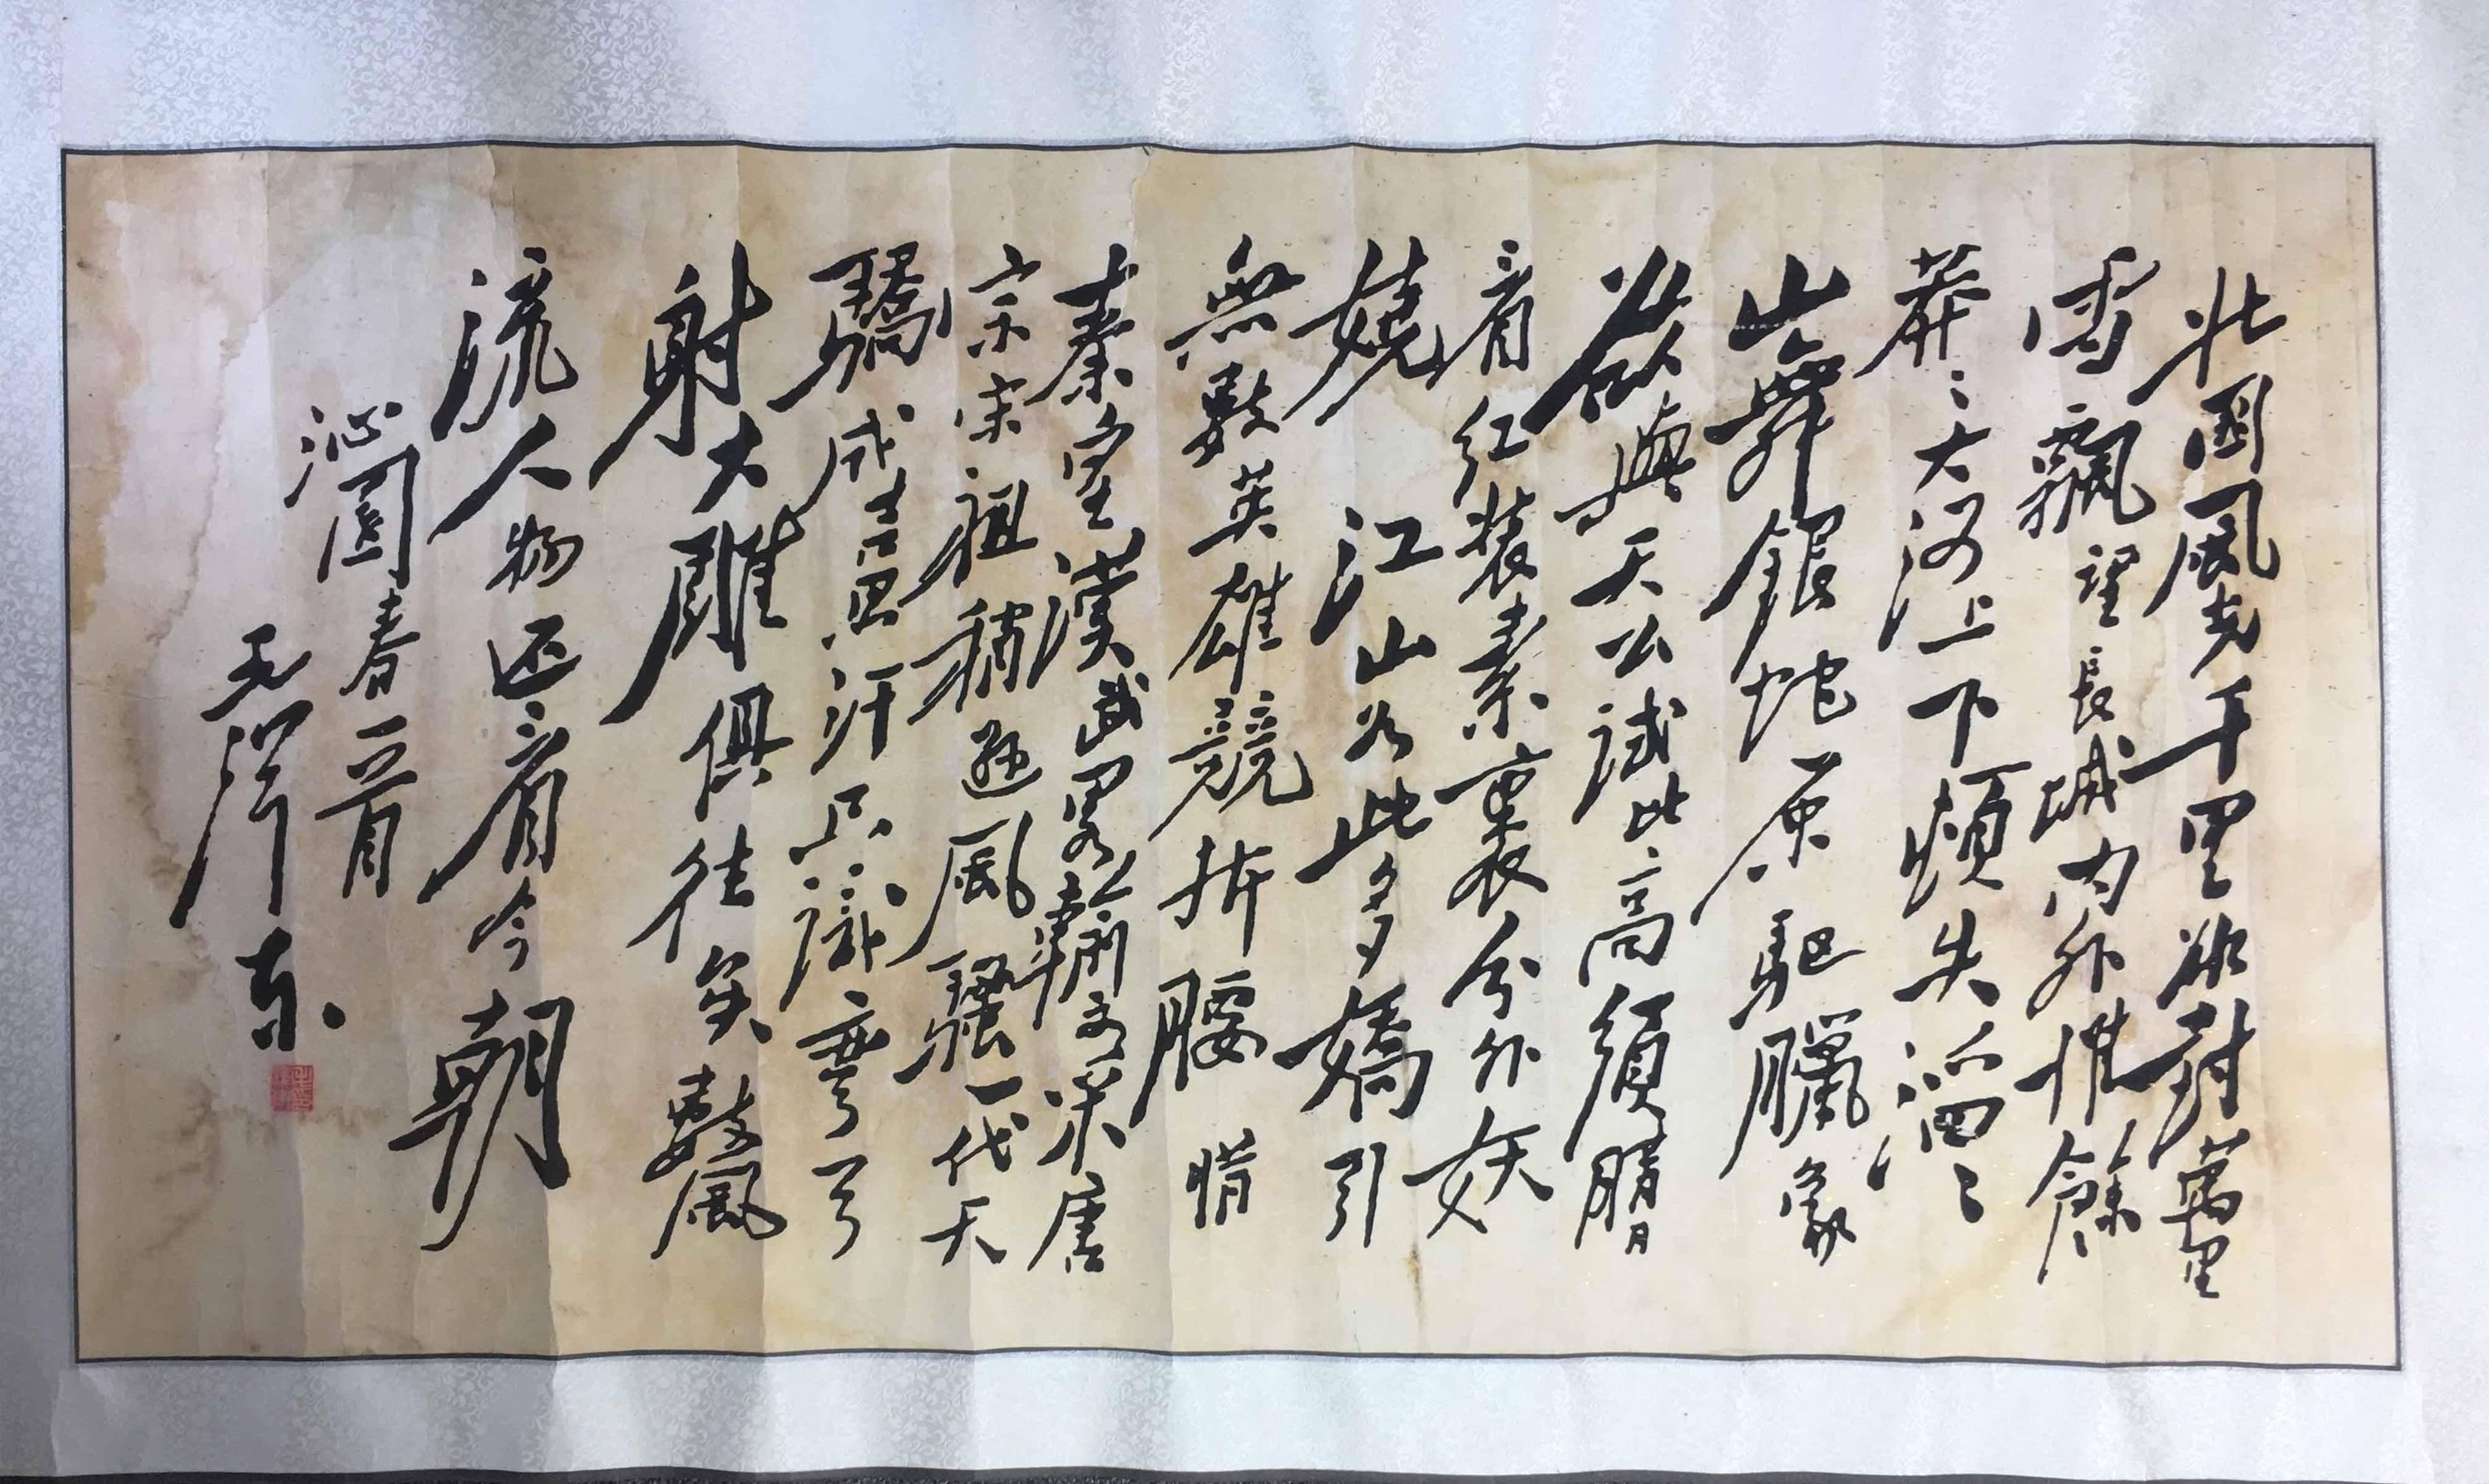 北國風光千里冰封萬里
雪飄望長城内外惟餘
莽〻大河上下頓失滔〻
山舞銀蛇原馳臘象
欲與天公試比高須晴日
看紅裝素裹分外妖
嬈江山如此多嬌引
無數英雄競折腰惜
秦皇漢武畧輸文采唐
宗宋祖稍遜風騷一代天
驕成吉思汗只識彎弓
射大雕俱往矣數風
流人物还看今朝
沁園春一首
毛澤东